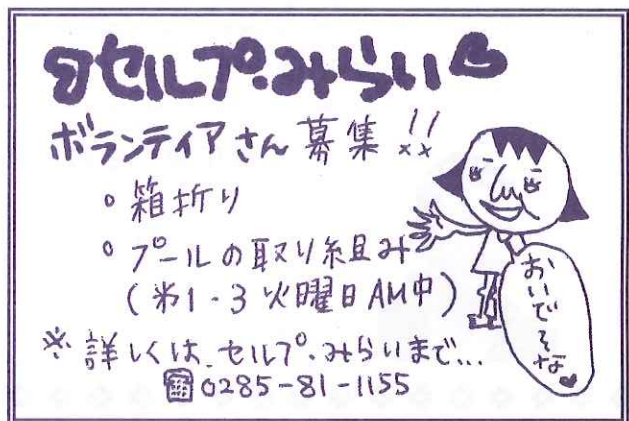 セルプ・みらい
ボランティアさん募集!!
◦箱折り
◦プールの取り組み
(第1・3火曜日AM中)
※詳しくは、セルプ・みらいまで…
☎0285-81-1155
おいでそな♥